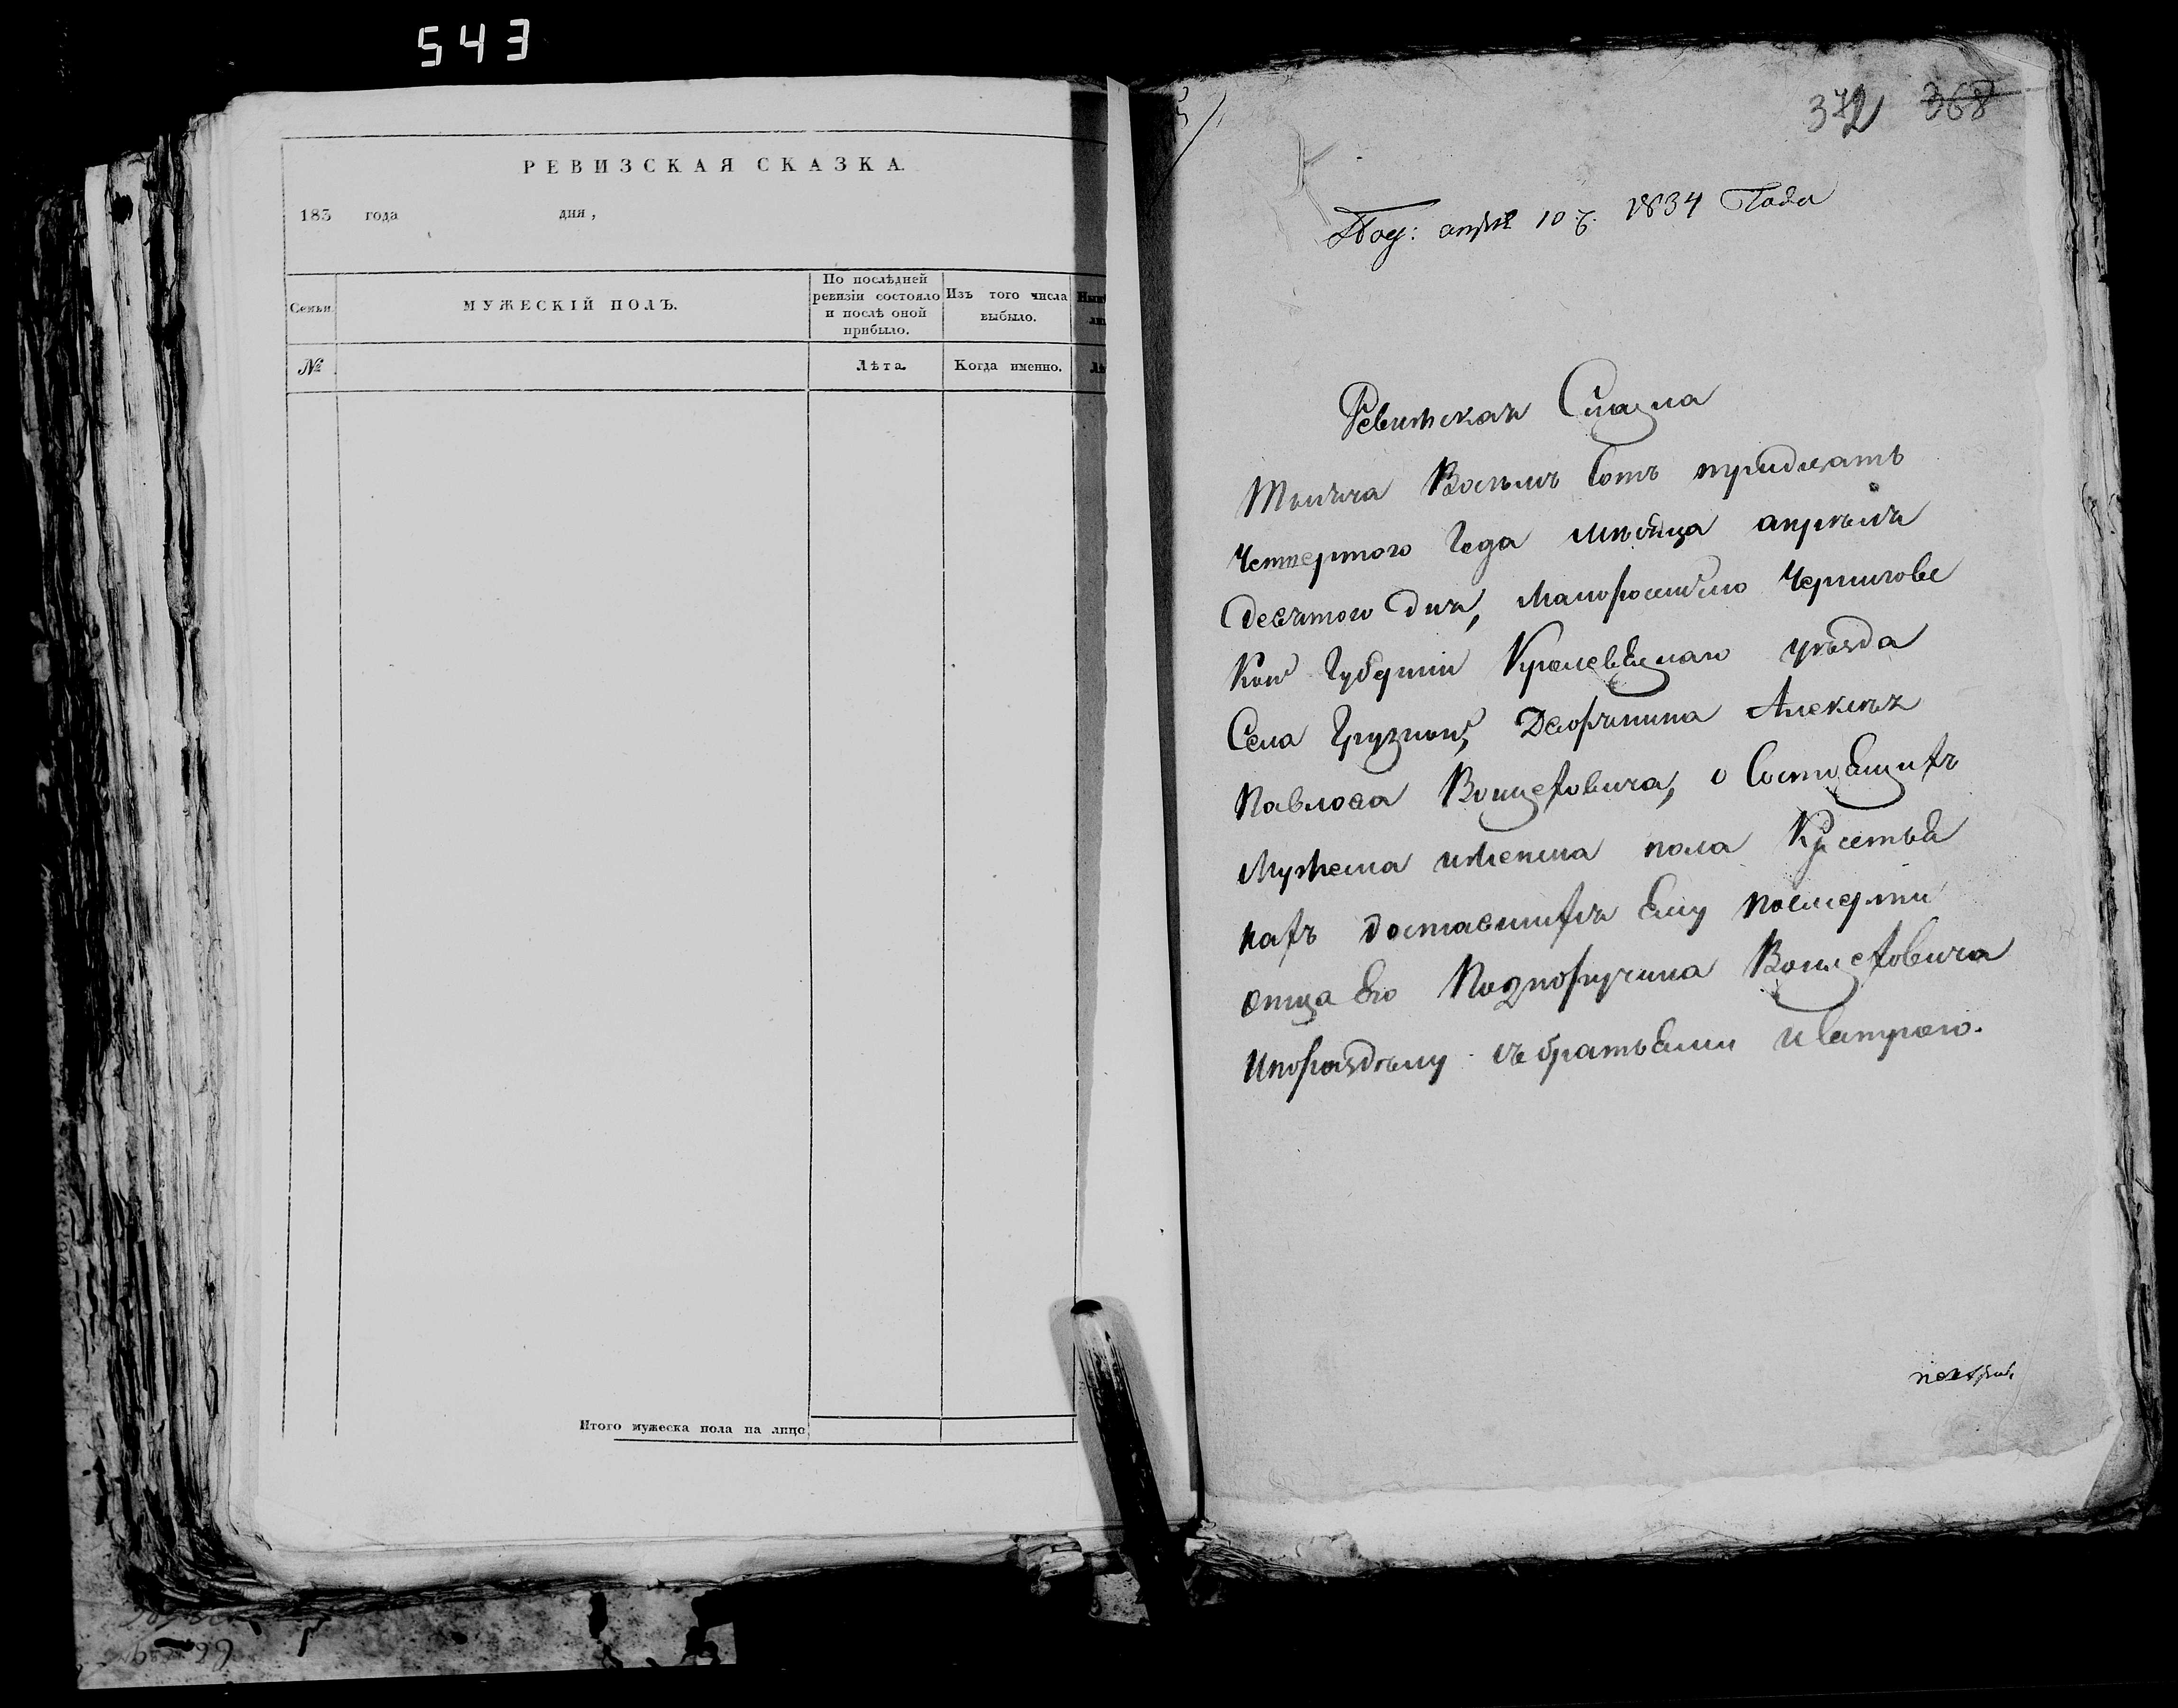 543
РЕВИЗСКАЯ СКАЗКА.
183 года дня,
Семьи
МУЖЕСКІЙ ПОЛЪ.
По послѣдней ревизіи состояло и послѣ оной прибыло.
Изъ того числа выбыло.
№
Лѣта.
Когда именно.
Итого мужеска пола на лицо
372 368
10 1834 Года
Ревизская Сказка
Тысяча Восемь Сотъ тридцать
Четвертого Года Месяца апреля
Десятого дня, Малоросийско Чернигове
Кой Губернии Кролевецкаго уезда
Села Грузкои, Дворянина Алексея
Павлова Войцеховича, о Состоящихъ
Мужеска иженска пола Крестья
нахъ доставшихся Ему посмерти
отца Его Подпоручика Войцеховича
Ипоразделу съ братьями Исестрою.